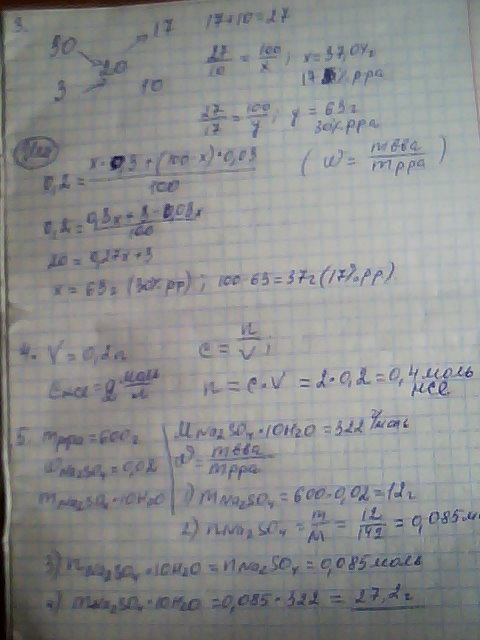 3.
30 17 17+10=27
20 27/10 = 100/x ; x=37,04г
3 10 17 %р-ра
27/17 = 100/y ; y=63г
30% р-ра
0,2 = x·0,3+(100-x)·0,03 / 100 (w = mв-ва / mр-ра)
0,2 = 0,3x+3-0,03x / 100
20=0,27x+3
x=63г (30% р-р) ; 100-63=37г (17% р-р)
4. V=0,2л c = n/V ;
CHCl=2 моль/л n=c·V=2·0,2=0,4 моль HCl
5. mр-ра=600г MNa2SO4·10H2O=322 г/моль
wNa2SO4=0,02 w = mв-ва / mр-ра
mNa2SO4·10H2O 1) mNa2SO4=600·0,02=12г
2) nNa2SO4 = m/M = 12/142 = 0,085м
3) nNa2SO4·10H2O=nNa2SO4=0,085моль
4) mNa2SO4·10H2O=0,085·322=27,2г